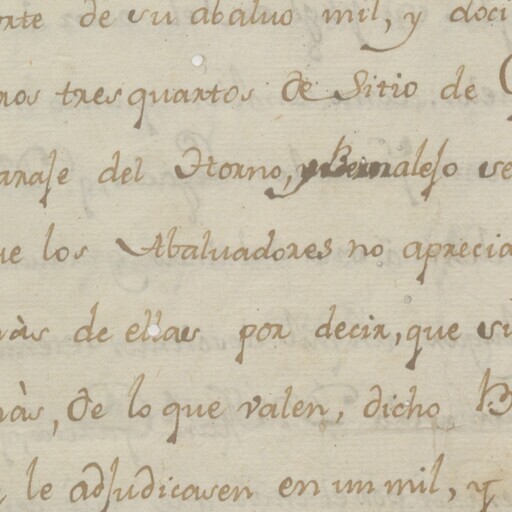 rte de su abaluo mil, y doci
nos tres quartos de Sitio de
del Horno, y Bernalejo se
ue los Abaluadores no aprecia
ràs de ellas por decir, que su
nàs, de lo que valen, dicho B
le adjudicasen en un mil, y